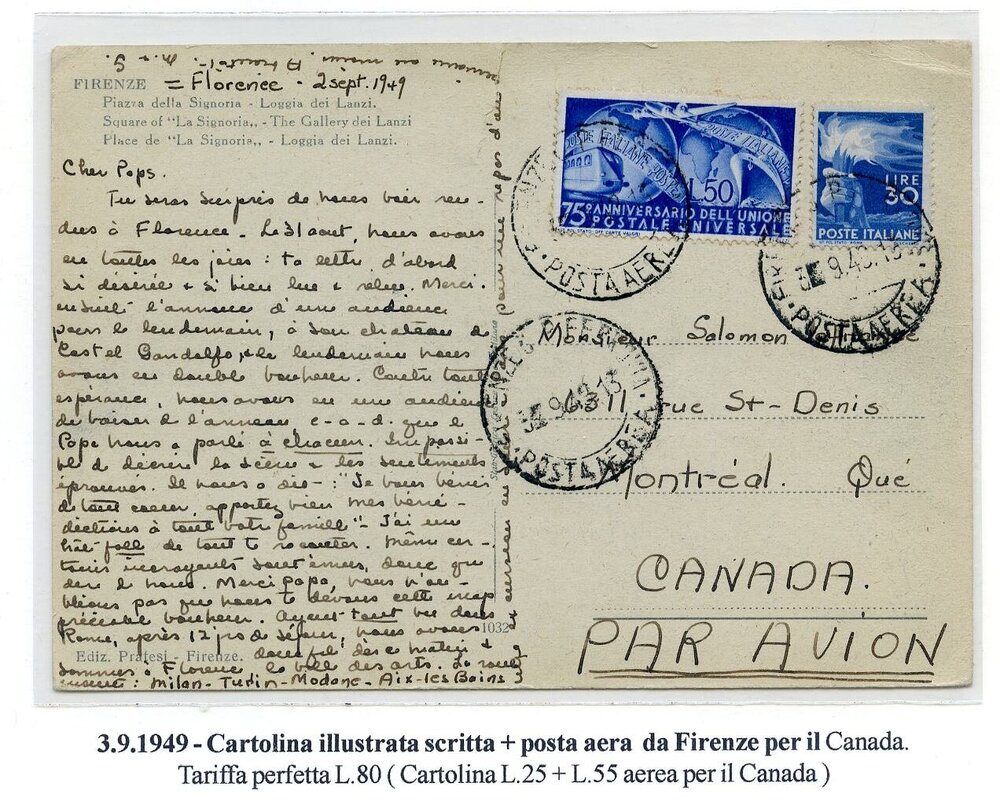 FIRENZE = Florence - 2 sept. 1949
Piazza della Signoria - Loggia dei Lanzi.
Square of "La Signoria„ - The Gallery dei Lanzi
Place de "La Signoria„ - Loggia dei Lanzi.
Cher Pops.
Tu seras surpris de nous voir ren-
dues à Florence. Le 31 aout, nous avons
eu toutes les joies: ta lettre d'abord
si désirée & si bien lue & relue. Merci.
ensuite l'annonce d'une audience
pour le lendemain, à son chateau de
Castel Gandolfo, & le lendemain nous
avons eu double bonheur. Contre toute
espérance, nous avons eu une audience
de baiser de l'anneau c-a-d. que le
Pape nous a parlé à chacun. Impossi-
ble de décrire la scène & les sentiments
éprouvés. Il nous a dit: "Je vous bénis
de tout coeur, apportez bien mes béné-
dictions à toute votre famille" - J'ai une
hâte folle de tout te raconter. Même cer-
tains incroyants sont émus, donc que
dire de nous. Merci papa, nous n'ou-
blions pas que nous te devons cette
bonheur. Ayant tout vu dans
Rome, après 12 jrs de séjour, nous avons
Ediz. Pratesi - Firenze.
sommes à Florence la ville des arts. La
: Milan - Turin - Modane - Aix-les Bains
1032
POSTE ITALIANE
POSTE ITALIANE
L.50
75º ANNIVERSARIO DELL'UNIONE
POSTALE UNIVERSALE
LIRE
30
POSTE ITALIANE
POSTA AEREA
3 9.49.13
POSTA AEREA
3 9.49.13
POSTA AEREA
Monsieur Salomon
6311 rue St-Denis
Montréal. Qué
CANADA.
PAR AVION
3.9.1949 - Cartolina illustrata scritta + posta aera da Firenze per il Canada.
Tariffa perfetta L.80 ( Cartolina L.25 + L.55 aerea per il Canada )